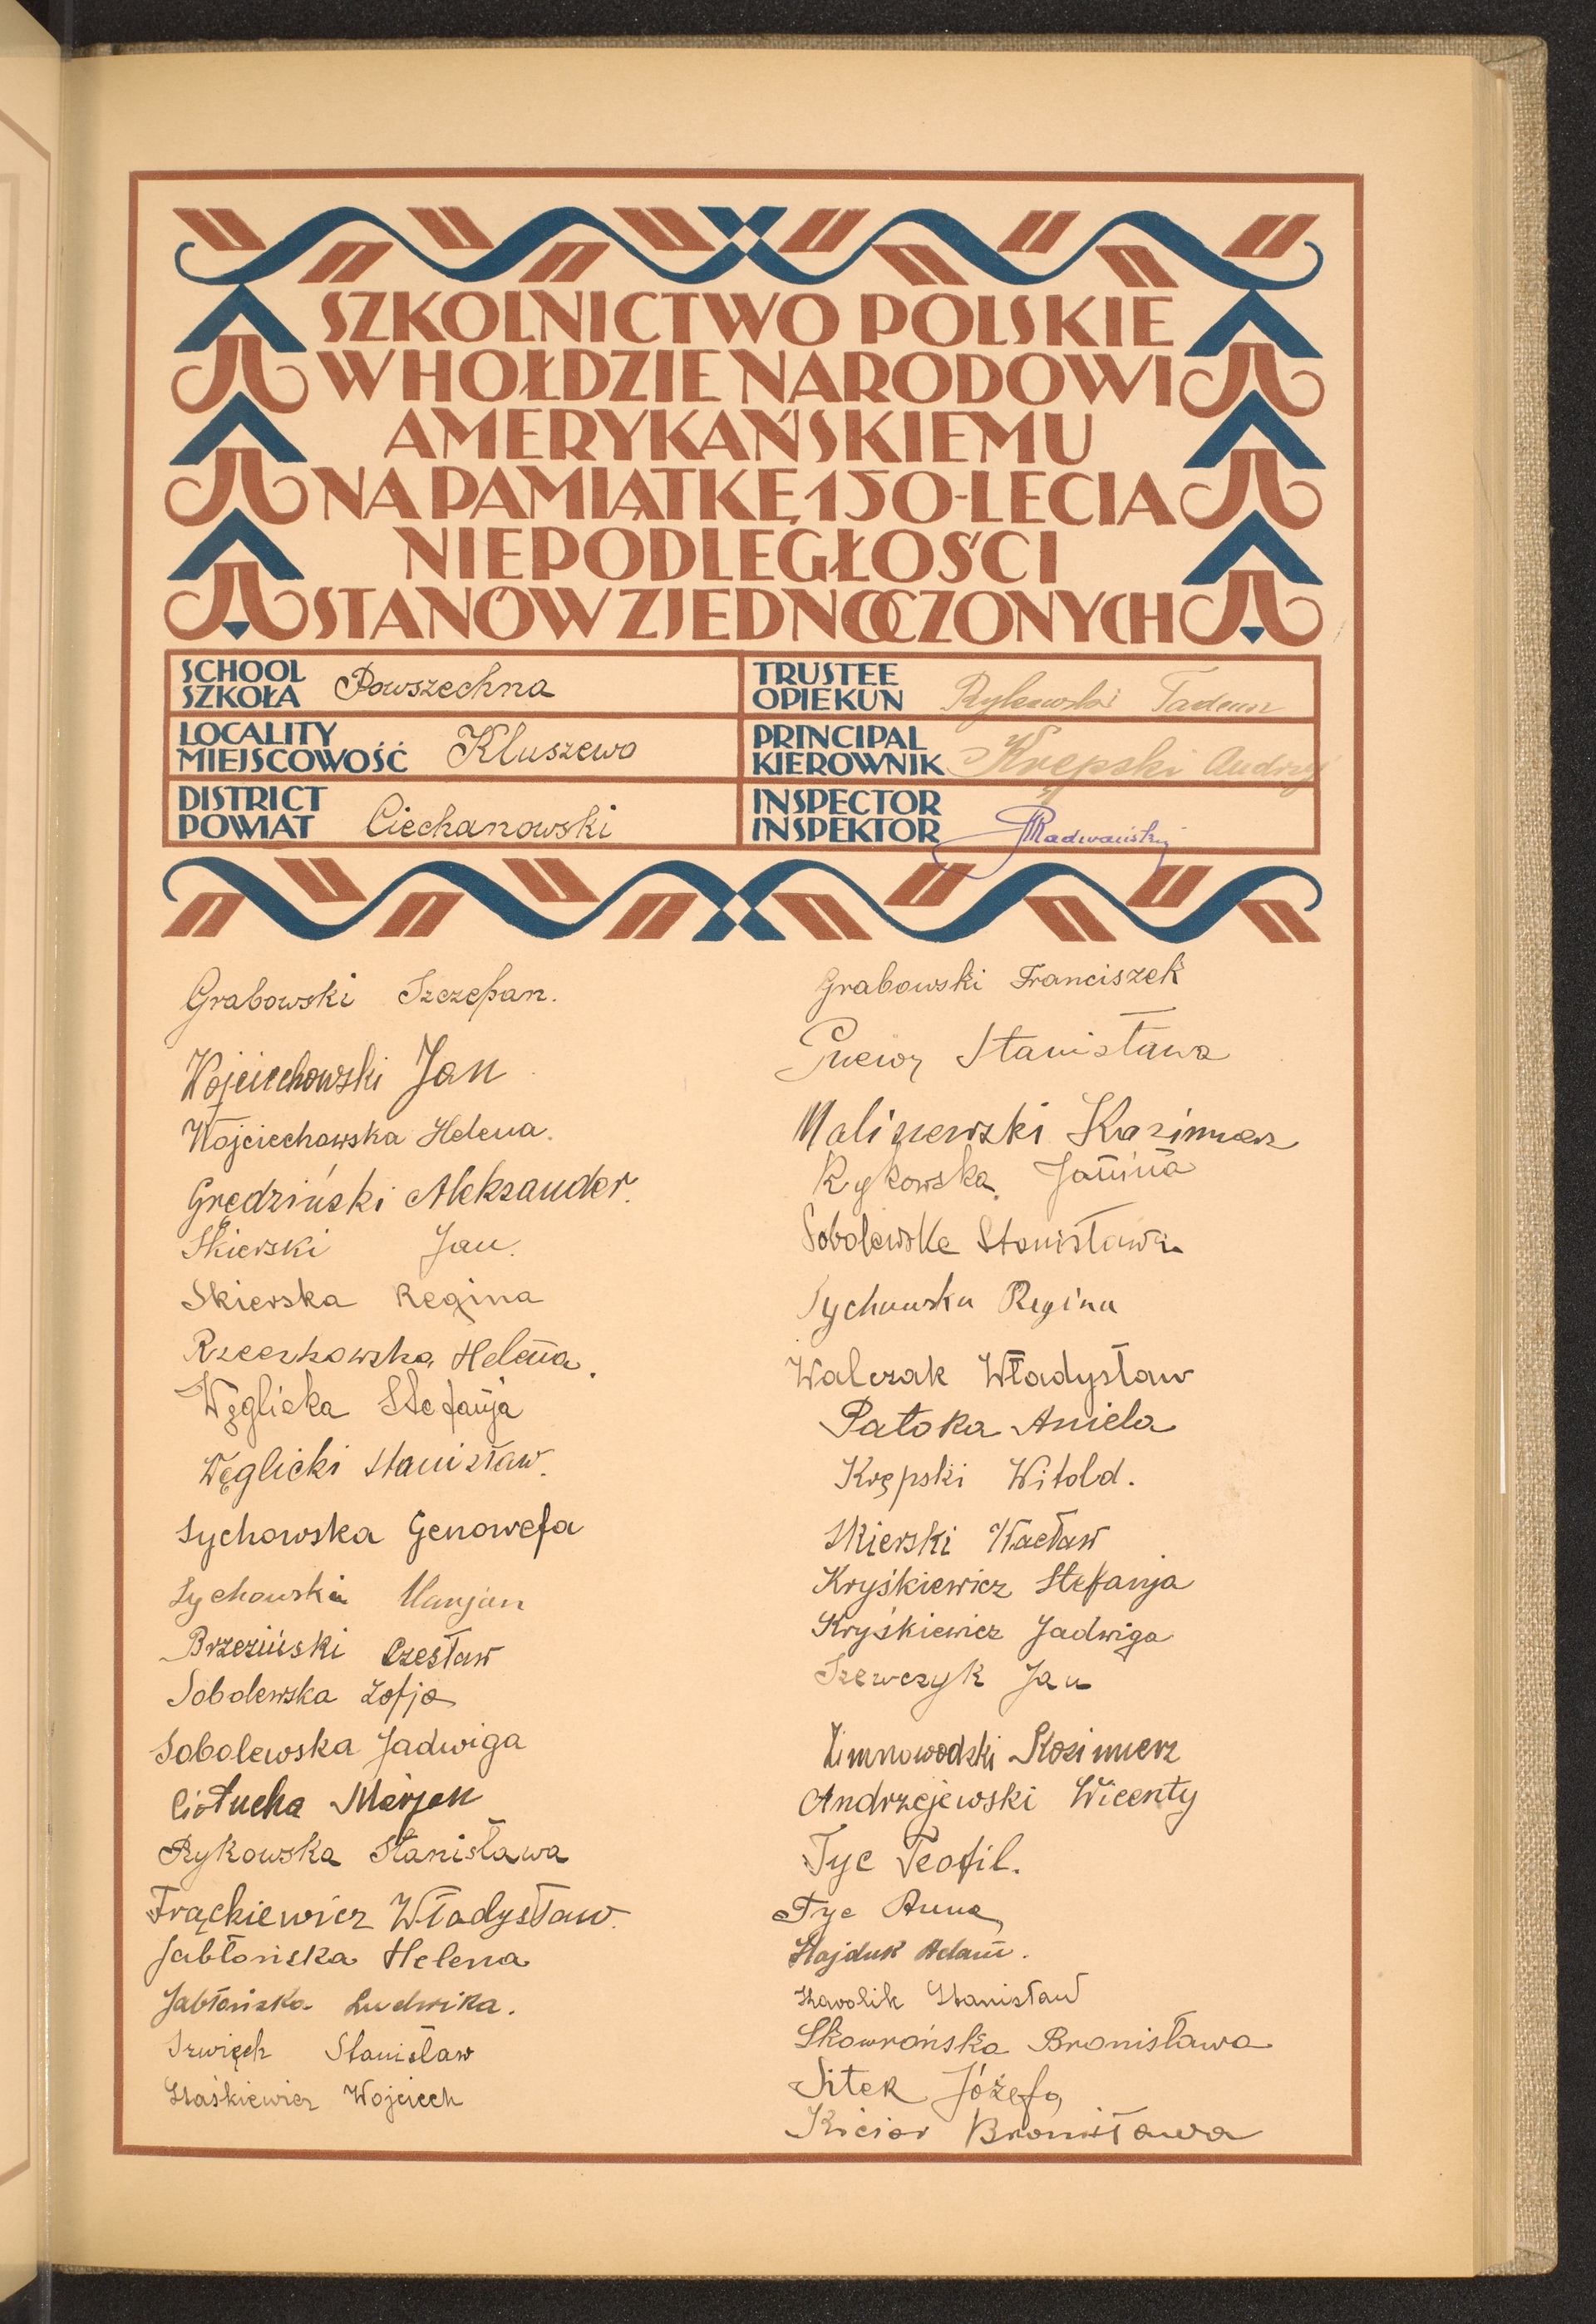 SZKOLNICTWO POLSKIE
W HOŁDZIE NARODOWI
AMERYKAŃSKIEMU
NA PAMIĄTKĘ 150-LECIA
NIEPODLEGŁOŚCI
STANÓW ZJEDNOCZONYCH
SCHOOL
SZKOŁA Powszechna
TRUSTEE
OPIEKUN Rykowski Tadeusz
LOCALITY
MIEJSCOWOŚĆ Kluszewo
PRINCIPAL
KIEROWNIK Krępski Andrzej
DISTRICT
POWIAT Ciechanowski
INSPECTOR
INSPEKTOR Radwański
Grabowski Szczepan.
Wojciechowski Jan
Wojciechowska Helena.
Grędziński Aleksander.
Skierski Jan.
Skierska Regina
Rzeczkowska Helena.
Węglicka Stefanja
Węglicki Stanisław.
Sychowska Genowefa
Sychowski Marjan
Brzeziński Czesław
Sobolewska Zofja
Sobolewska Jadwiga
Ciołucha Marjan
Rykowska Stanisława
Frąckiewicz Władysław.
Jabłońska Helena
Jabłońska Ludwika.
Stanisław
Staśkiewicz Wojciech
Grabowski Franciszek
Stanisława
Maliszewski Kazimierz
Rykowska Janina
Sobolewska Stanisława
Sychowska Regina
Walczak Władysław
Patoka Aniela
Krępski Witold.
Skierski Wacław
Kryśkiewicz Stefanja
Kryśkiewicz Jadwiga
Szewczyk Jan
Zimnowodzki Kazimierz
Andrzejewski Wicenty
Tyc Teofil.
Tyc Anna
Hajduk Adam.
Stanisław
Skowrońska Bronisława
Sitek Józefa
Kicior Bronisława